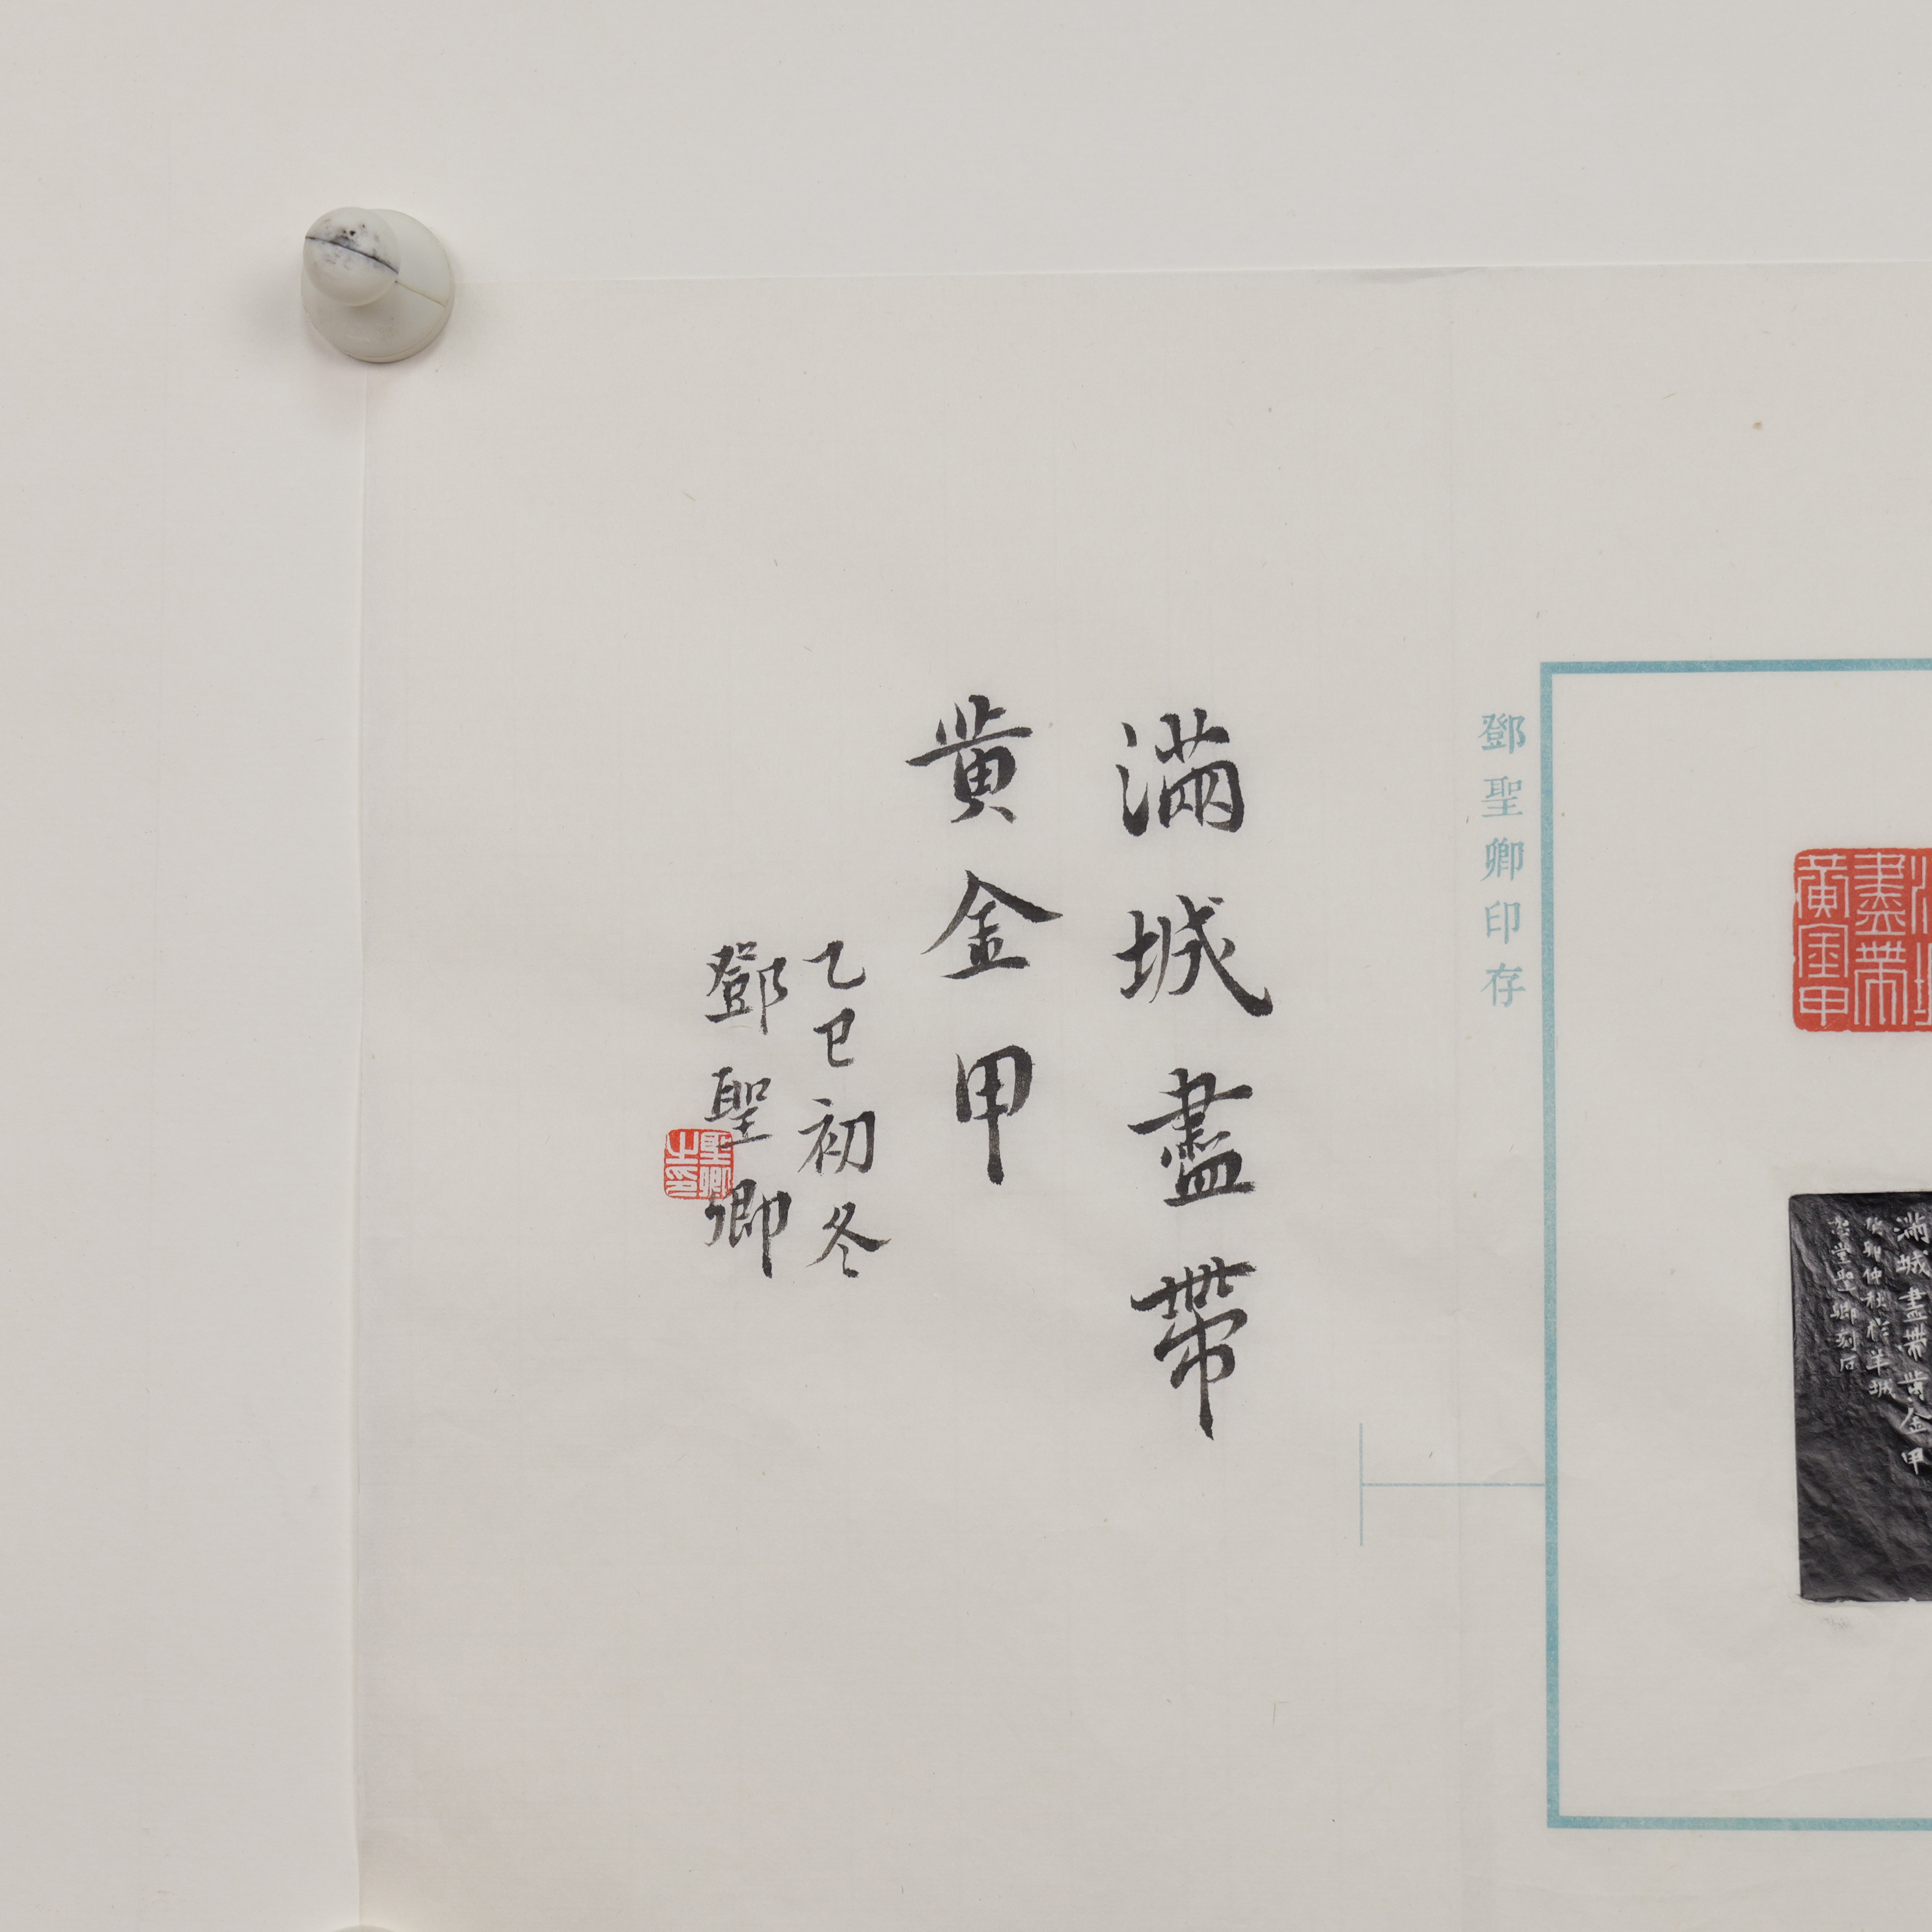 滿城盡帶
黃金甲
乙巳初冬
鄧聖卿
聖卿
之印
鄧聖卿印存
盡帶
黃金甲
滿城盡帶黃金甲
癸卯仲秋於羊城
堂聖卿刻石